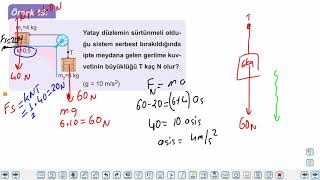 Örnek 15:
m₁=4 kg
50N
Fs=20N
k=0,5
T
40N
m₂=6 kg
60N
Fs = kNT
= 1/2 · 40 = 20N
mg
6·10 = 60N
Yatay düzlemin sürtünmeli oldu-
ğu sistem serbest bırakıldığında
ipte meydana gelen gerilme kuv-
vetinin büyüklüğü T kaç N olur?
(g = 10 m/s²)
F_N = m a
60-20 = (6+4) as
40 = 10 asis
asis = 4m/s²
T
6kg
60N